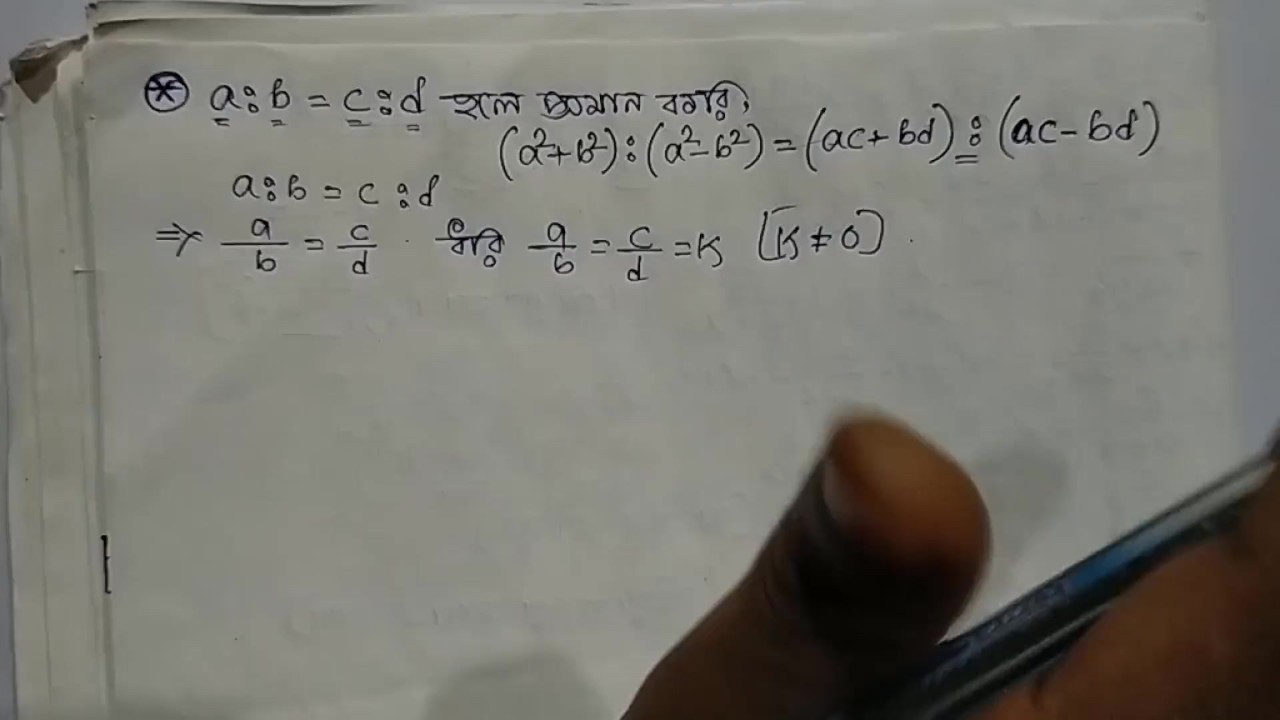 ⊛ a:b = c:d হলে প্রমান করি,
(a²+b²):(a²-b²) = (ac+bd):(ac-bd)
a:b = c:d
⇒ a/b = c/d . ধরি a/b = c/d = K [K ≠ 0] .